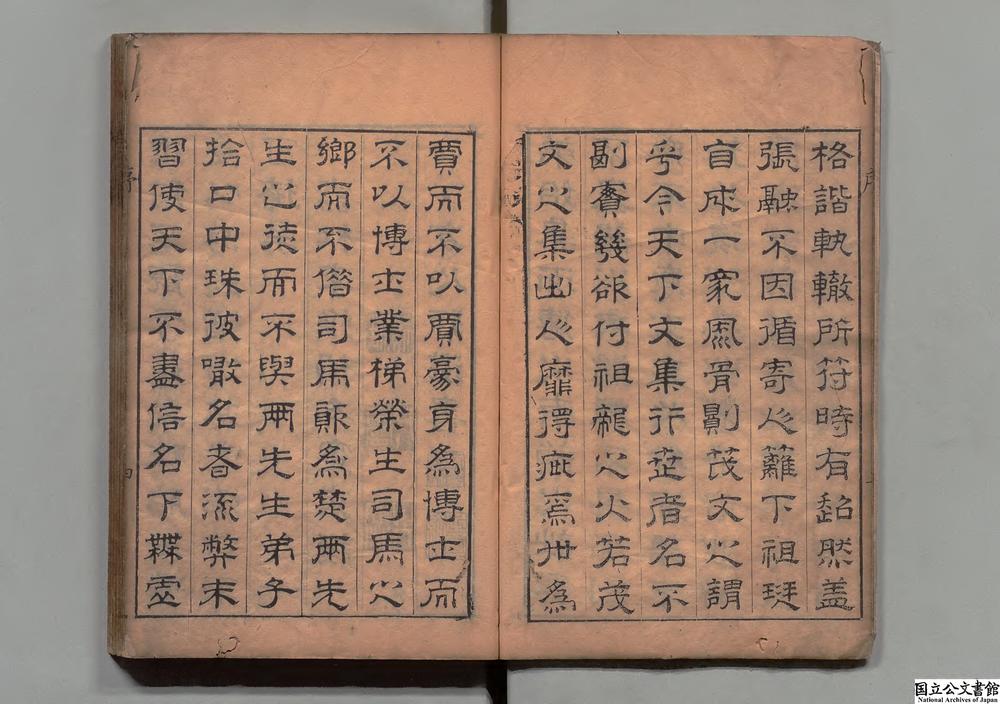 格諧軌轍所符時有超然盖
張融不因循寄人籬下祖珽
自成一家風骨則茂文之謂
乎今天下文集行世者名不
副實幾欲付祖龍之火若茂
文之集出人靡得疵焉世為
賈而不以賈豪身為博士而
不以博士業梯榮生司馬之
鄉而不僭司馬為楚兩先
生之徒而不與兩先生弟子
拾口中珠彼噉名者流弊末
習使天下不盡信名下虛
序
四
国立公文書館
National Archives of Japan